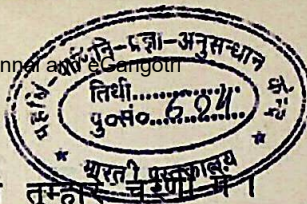 nnai and eGangotri
महर्षि-पाणिनि-प्रज्ञा-अनुसन्धान
तिथी..............
पु०सं०.604
भारती पुस्तकालय
तुम्हारे चरणों में ।